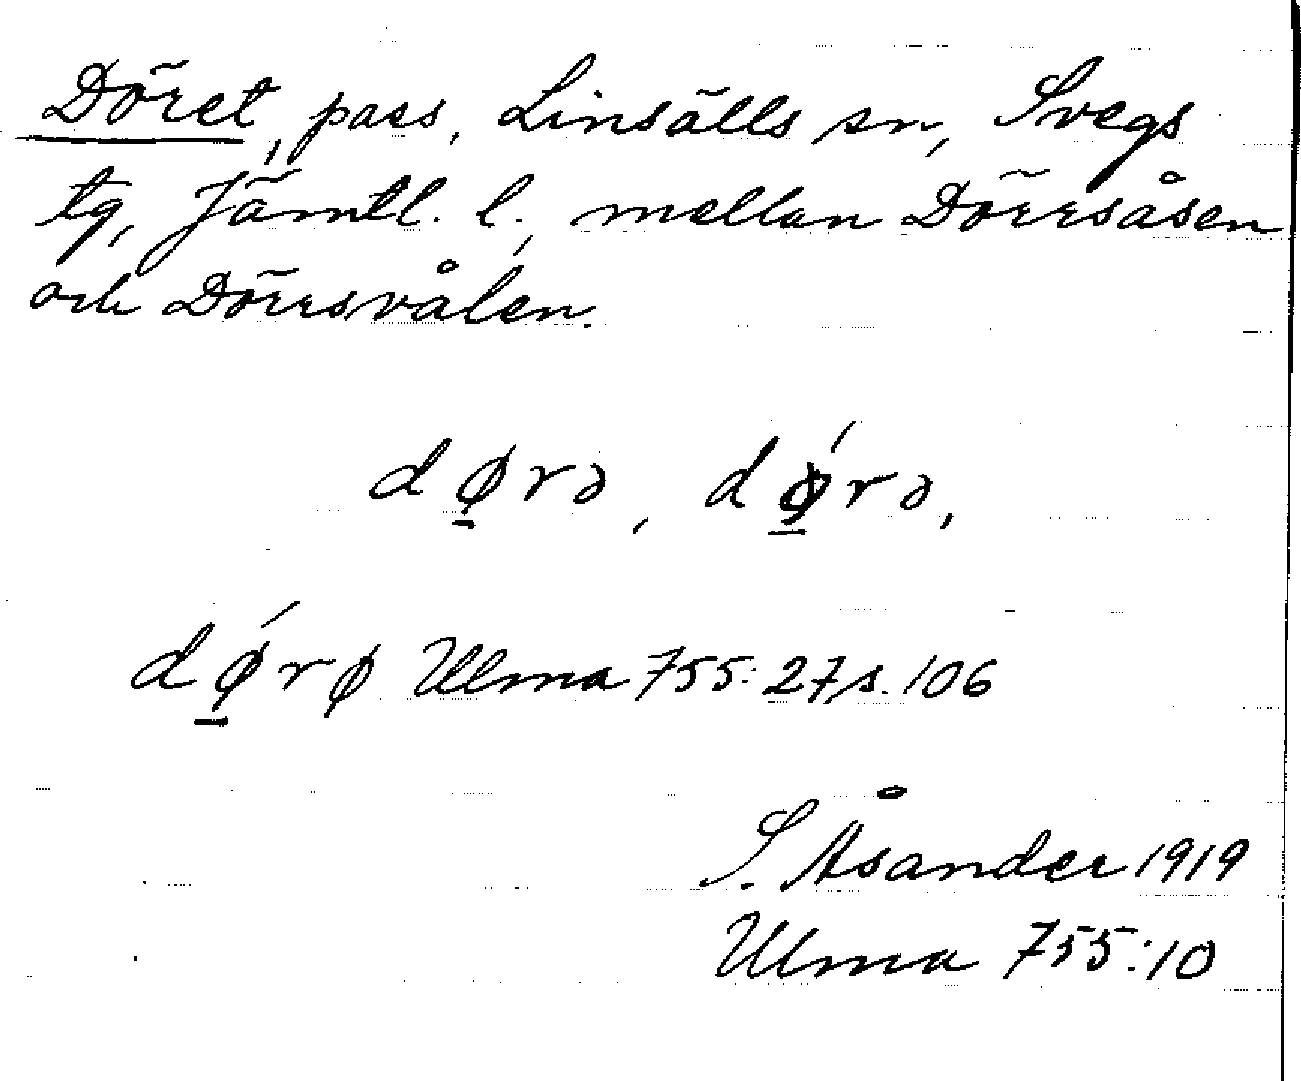 Döret, pass, Linsälls sn, Svegs
tg, Jämtl. l., mellan Dörrsåsen
och Dörrsvålen.
dø̱rə, dǿ̱rə,
dǿ̱rø Ulma 755:27 s. 106
S. Åsander 1919
Ulma 755:10